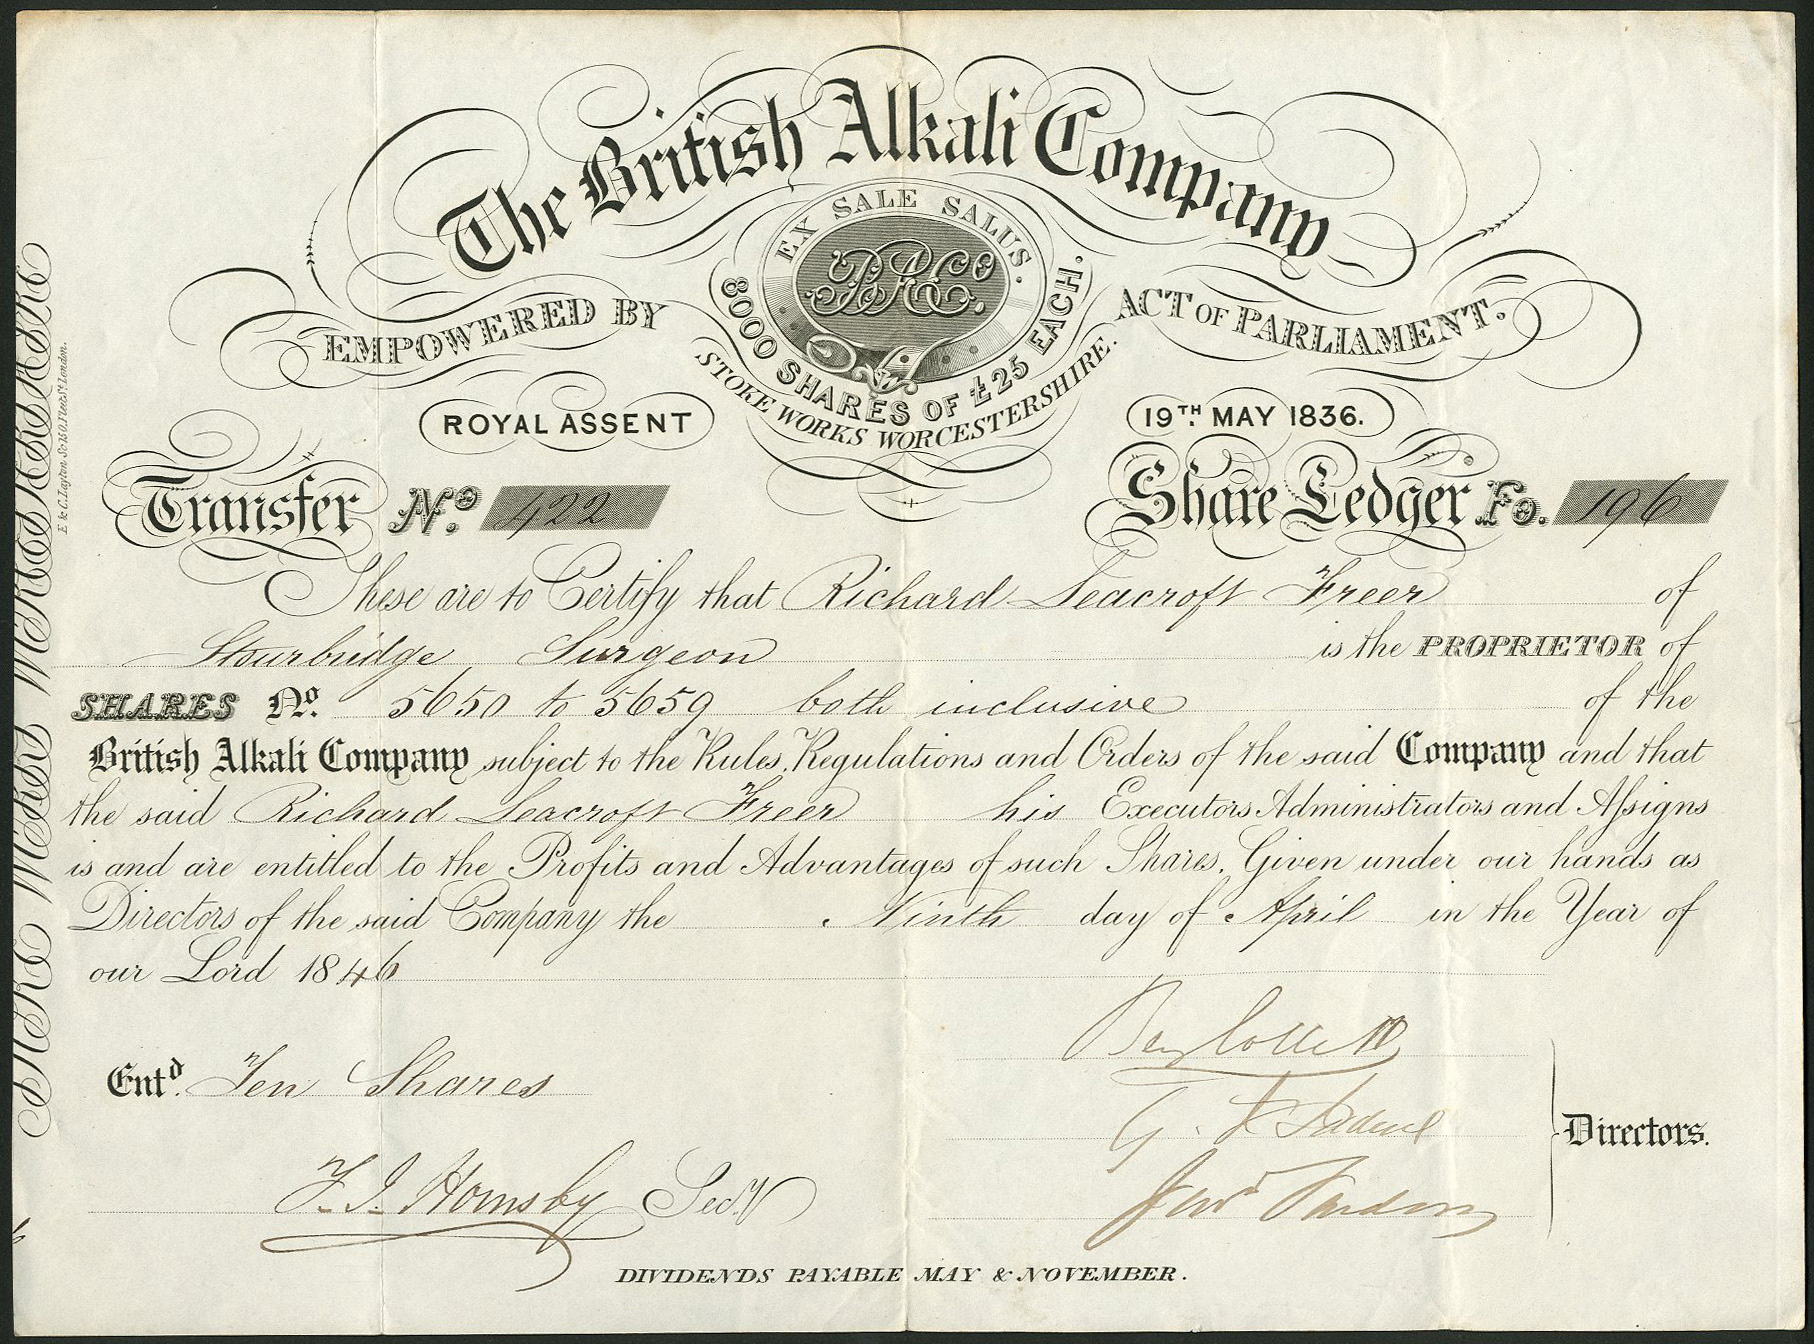 The British Alkali Company
EX SALE SALUS.
8000 SHARES OF £25 EACH.
STOKE WORKS WORCESTERSHIRE.
EMPOWERED BY ACT OF PARLIAMENT.
ROYAL ASSENT 19TH MAY 1836.
Transfer No. 422 Share Ledger Fo. 196
These are to Certify that Richard Leacroft Freer of
Stourbridge Surgeon is the PROPRIETOR of
SHARES No. 5650 to 5659 both inclusive of the
British Alkali Company subject to the Rules, Regulations and Orders of the said Company and that
the said Richard Leacroft Freer his Executors Administrators and Assigns
is and are entitled to the Profits and Advantages of such Shares. Given under our hands as
Directors of the said Company the Ninth day of April in the Year of
our Lord 1846
Entd. Ten Shares
F. I. Hornsby Secy
Directors.
DIVIDENDS PAYABLE MAY & NOVEMBER.
E & C. Layton Sc. 150, Fleet St. London.